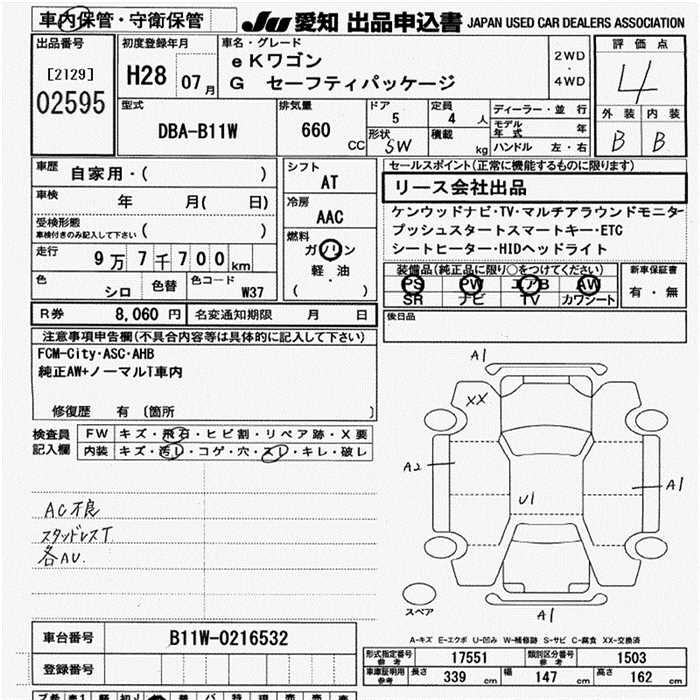 車内保管・守衛保管 JU 愛知 出品申込書 JAPAN USED CAR DEALERS ASSOCIATION
出品番号
[2129]
02595
初度登録年月
H28 07月
車名・グレード
eKワゴン
G セーフティパッケージ
2WD
・
4WD
評価点
4
外装 内装
B B
型式
DBA-B11W
排気量
660 CC
ドア
5
形状
SW
定員
4 人
積載
kg
ディーラー・並行
モデル年式 年
ハンドル 左・右
車歴
自家用・( )
車検
年 月( 日)
受検形態
車検付きのみ記入して下さい ( )
走行
9万7千700km
色
シロ
色替
色コード
W37
シフト
AT
冷房
AAC
燃料
ガソリン
軽・油
( )
セールスポイント(正常に機能するものに限ります)
リース会社出品
ケンウッドナビ・TV・マルチアラウンドモニター
プッシュスタートスマートキー・ETC
シートヒーター・HIDヘッドライト
装備品(純正品に限り○をつけてください)
PS PW エアB AW
SR ナビ TV カワシート
新車保証書
有・無
R券 8,060円 名変通知期限 月 日
後日品
注意事項申告欄(不具合内容等は具体的に記入して下さい)
FCM-City・ASC・AHB
純正AW+ノーマルT車内
修復歴 有 〔箇所 〕
検査員
記入欄
FW キズ・飛石・ヒビ割・リペア跡・X要
内装 キズ・汚レ・コゲ・穴・スレ・キレ・破レ
AC不良
スタッドレスT
各AU.
A1
XX
A2
U1
A1
A1
スペア
A-キズ E-エクボ U-凹み W-補修跡 S-サビ C-腐食 XX-交換済
車台番号 B11W-0216532
登録番号
形式指定番号 参考 17551 類別区分番号 参考 1503
車庫証明用 参考 長さ 339 cm 幅 147 cm 高さ 162 cm